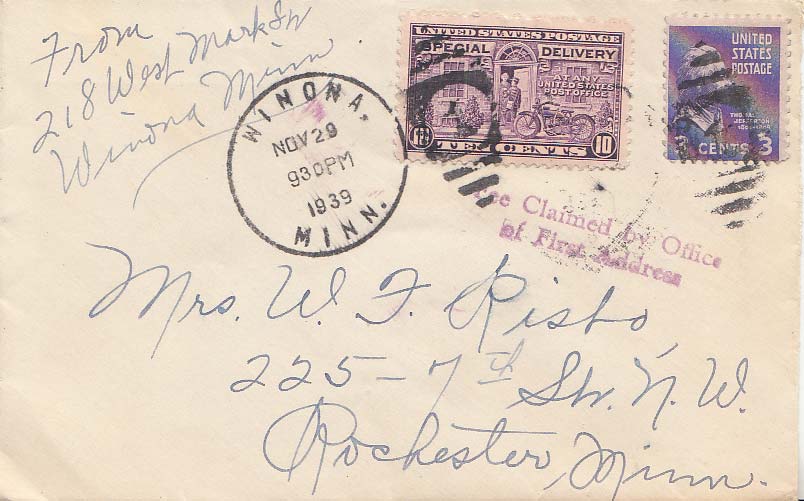 From
218 West Mark St
Winona Minn.
WINONA,
NOV 29
930PM
1939
MINN.
UNITED STATES POSTAGE
SPECIAL DELIVERY
AT ANY
UNITED STATES
POST OFFICE
10 TEN CENTS 10
UNITED
STATES
POSTAGE
THOMAS
JEFFERSON
3 CENTS 3
Fee Claimed by Office
of First Address
Mrs. W. F. Risto,
225-7th St. N.W.
Rochester, Minn.